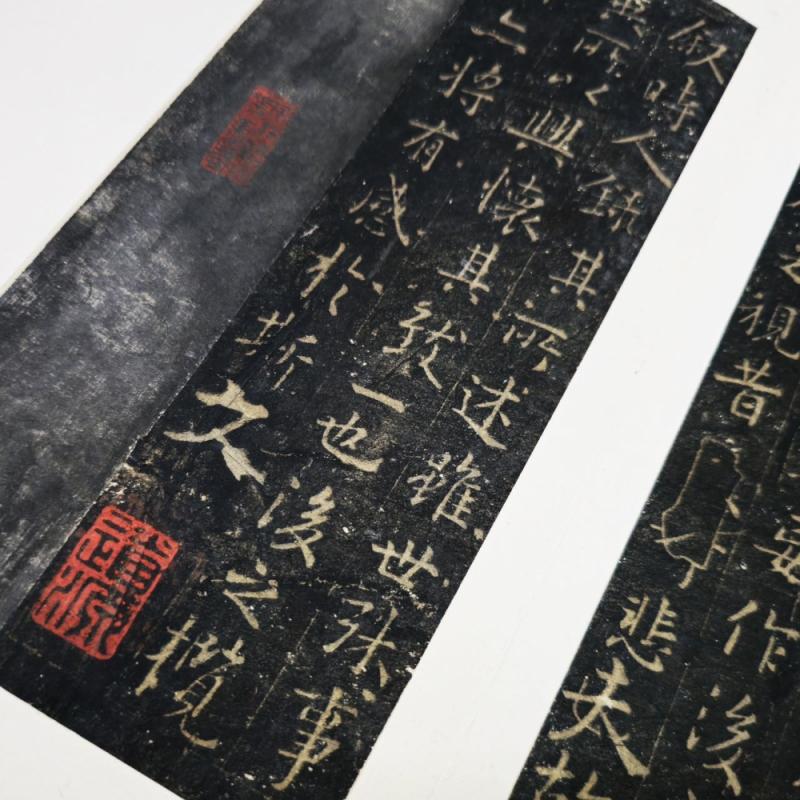 妄作後
視昔悲夫故
叙時人録其所述雖世殊事
異所以興懷其致一也後之攬
亦將有感於斯文